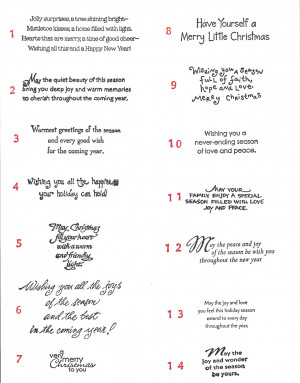 1
Jolly surprises, a tree shining bright~
Mistletoe kisses, a home filled with light.
Hearts that are merry, a time of good cheer~
Wishing all this and a Happy New Year!
2
May the quiet beauty of this season
bring you deep joy and warm memories
to cherish throughout the coming year.
3
Warmest greetings of the season
and every good wish
for the coming year.
4
Wishing you all the happiness
your holiday can hold!
5
May Christmas
fill your heart
with a warm
and friendly
light.
6
Wishing you all the joys
of the season
and the best
in the coming year!
7
very
merry
Christmas
to you
8
Have Yourself a
Merry Little Christmas
9
Wishing you a season
full of faith,
hope and love.
Merry Christmas
10
Wishing you a
never-ending season
of love and peace.
11
MAY YOUR
FAMILY ENJOY A SPECIAL
SEASON FILLED WITH LOVE
JOY AND PEACE.
12
May the peace and joy
of the season be with you
throughout the new year
13
May the joy and love
you feel this holiday season
extend to every day
throughout the year.
14
May the
joy and wonder
of the season
be yours.